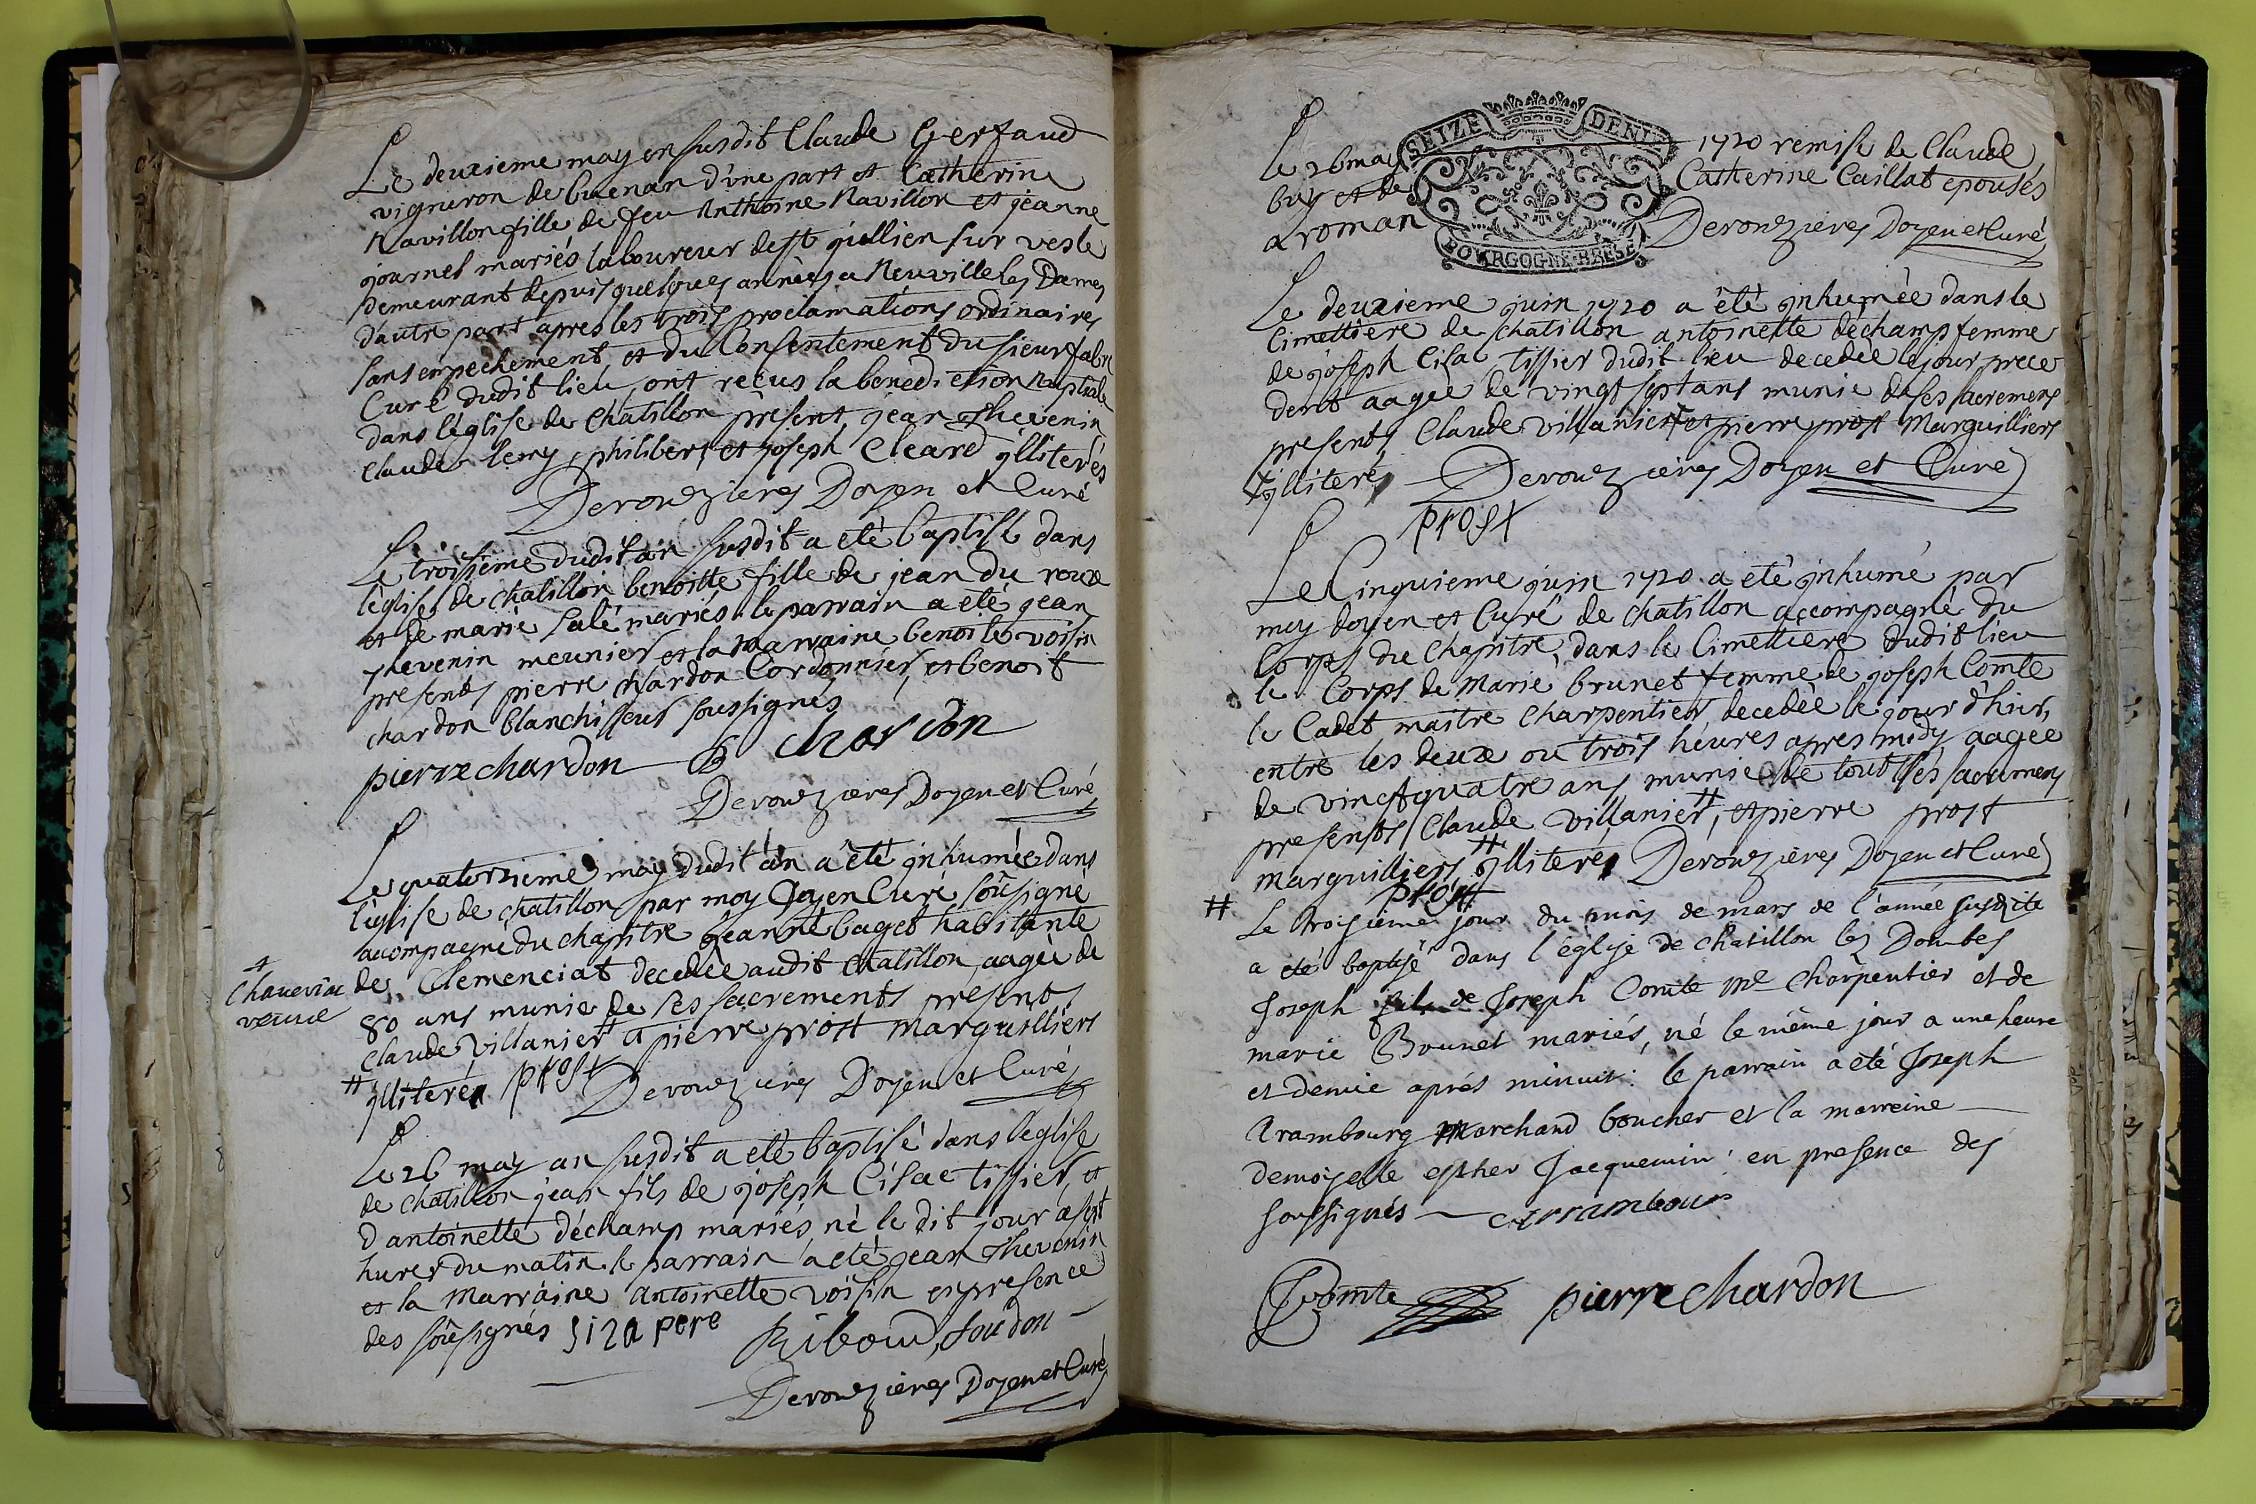 Le deuxieme may en susdit Claude Gerfaud
vigneron de buenan d'une part et Catherine
Navillon fille de feu Anthoine Navillon et jeanne
gournet mariés laboureur de st jullien sur vesle
Demeurant depuis quelques années a Neuville les Dames
d'autre part apres les trois proclamations ordinaires
sans empechement et du Consentement du sieur fabri
Curé dudit lieu, ont reçus la benediction nuptiale
dans l'église de chatillon present jean Thevenin
Claude lemy, philibert et joseph Cleard illiterés
Derouzieres Doyen et Curé
Le troisieme dudit an susdit a eté baptisé dans
l'églises de chatillon benoitte fille de jean du roux
et de marie salé mariés le parrain a eté jean
Thevenin meunier et la marraine benoite voisin
presents pierre chardon Cordonnier, et benoit
chardon blanchisseur soussignés
pierre chardon B chardon
Derouzieres Doyen et Curé
Le quatorzieme may dudit an a été inhumée dans
l'église de chatillon par moy Doyen Curé soûsigné
accompagné du chapitre jeanne baget habitante
de Clemenciat decedée audit chatillon, aagée de
chaneviac
veuve
80 ans munie de ses sacrements presents
Claude villanier # et pierre prost marguilliers
# illiterés prost Derouzieres Doyen et Curé
Le 26 may an susdit a eté baptisé dans l'église
de chatillon jean fils de joseph Cisac tissier, et
d'antoinette déchamp mariés né le dit jour à sept
hures du matin, le parrain a eté jean Thevenin
et la marraine antoinette voisin en presence
des soûsignés siza pere Riboud, Joudon
Derouzieres Doyen et Curé
SEIZE DENI
BOURGOGNE BRESSE
Le 26 may 1720 remise de Claude
buy et de Catherine Caillat epousés
a roman Derouzieres Doyen et Curé
Le deuxieme juin 1720 a été inhumée dans le
Cimettiere de chatillon antoinette déchamp femme
de joseph Cisac tissier dudit lieu decedée le jour prece
dent aagée de vingt sept ans munie de ses sacremens
presents Claude villanier # et pierre prost Marguilliers
# illiteré Derouzieres Doyen et Curé
prost
Le Cinquieme juin 1720 a eté inhumé par
moy doyen et Curé de chatillon accompagné du
Corps du Chapitre, dans le Cimettiere dudit lieu
le Corps de Marie brunet femme de joseph Comte
le Cadet maitre charpentier, decedée le jour d'hier,
entre les deux ou trois heures apres midy aagée
de vinct quatre ans munie de tout ses sacremens
presents Claude villanier #, et pierre prost
marguilliers # illiterés Derouzieres Doyen et Curé
prost
# Le troisieme jour du mois de mars de l'année susdite
a eté baptisé dans l'église de chatillon les Dombes
Joseph fils de Joseph Comte me Charpentier et de
marie Brunet mariés, né le même jour a une heure
et demie aprés minuit : le parrain a eté Joseph
Arambourg marchand boucher et la marreine
demoiselle esther Jacquemin : en presence des
soussignés arrambour
J Comte pierre chardon